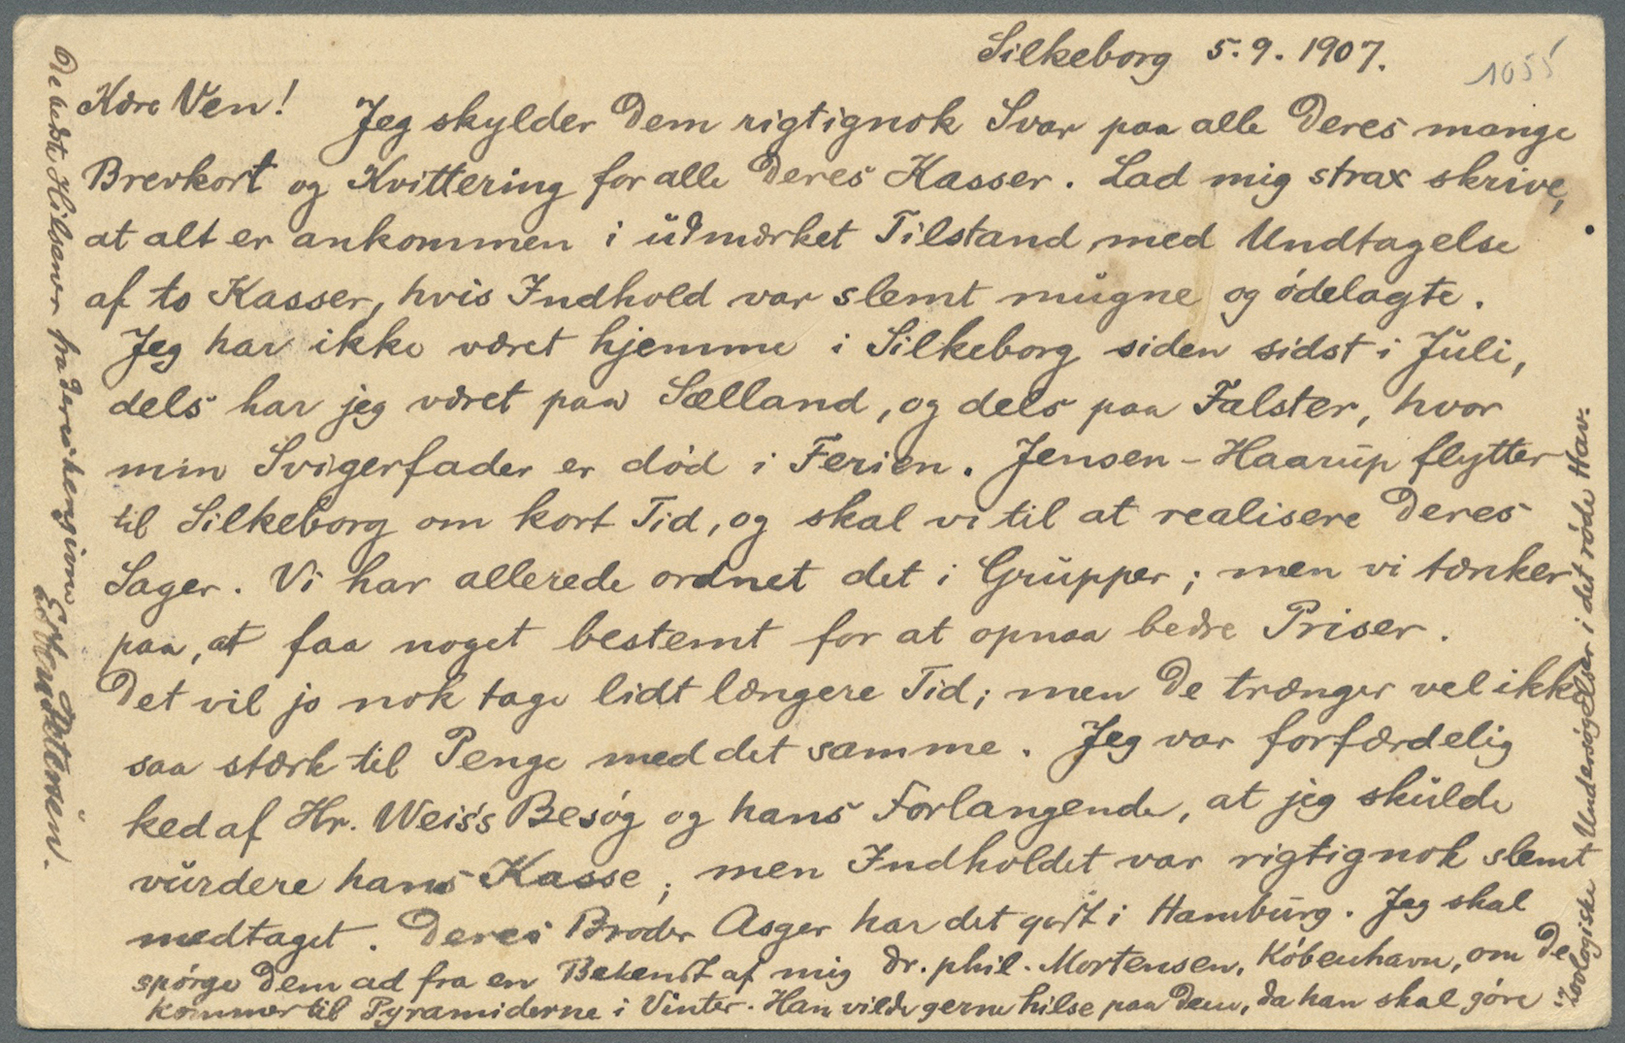 Silkeborg 5.9.1907.
1055
Kære Ven! Jeg skylder Dem rigtignok Svar paa alle Deres mange
Brevkort og Kvittering for alle Deres Kasser. Lad mig strax skrive,
at alt er ankommen i udmærket Tilstand med Undtagelse
af to Kasser, hvis Indhold var slemt mugne og ødelagte.
Jeg har ikke været hjemme i Silkeborg siden sidst i Juli,
dels har jeg været paa Sælland, og dels paa Falster, hvor
min Svigerfader er død i Ferien. Jensen-Haarup flytter
til Silkeborg om kort Tid, og skal vi til at realisere Deres
Sager. Vi har allerede ordnet det i Grupper; men vi tænker
paa, at faa noget bestemt for at opnaa bedre Priser.
Det vil jo nok tage lidt længere Tid; men De trænger vel ikke
saa stærk til Penge med det samme. Jeg var forfærdelig
ked af Hr. Weis's Besøg og hans Forlangende, at jeg skulde
vurdere hans Kasse; men Indholdet var rigtignok slemt
medtaget. Deres Broder Asger har det godt i Hamburg. Jeg skal
spørge Dem ad fra en Bekendt af mig Dr. phil. Mortensen, København, om De
kommer til Pyramiderne i Vinter. Han vilde gerne hilse paa Dem, da han skal gøre
Zoologiske Undersøgelser i det røde Hav.
De bedste Hilsener fra Deres hengivne
Petersen.